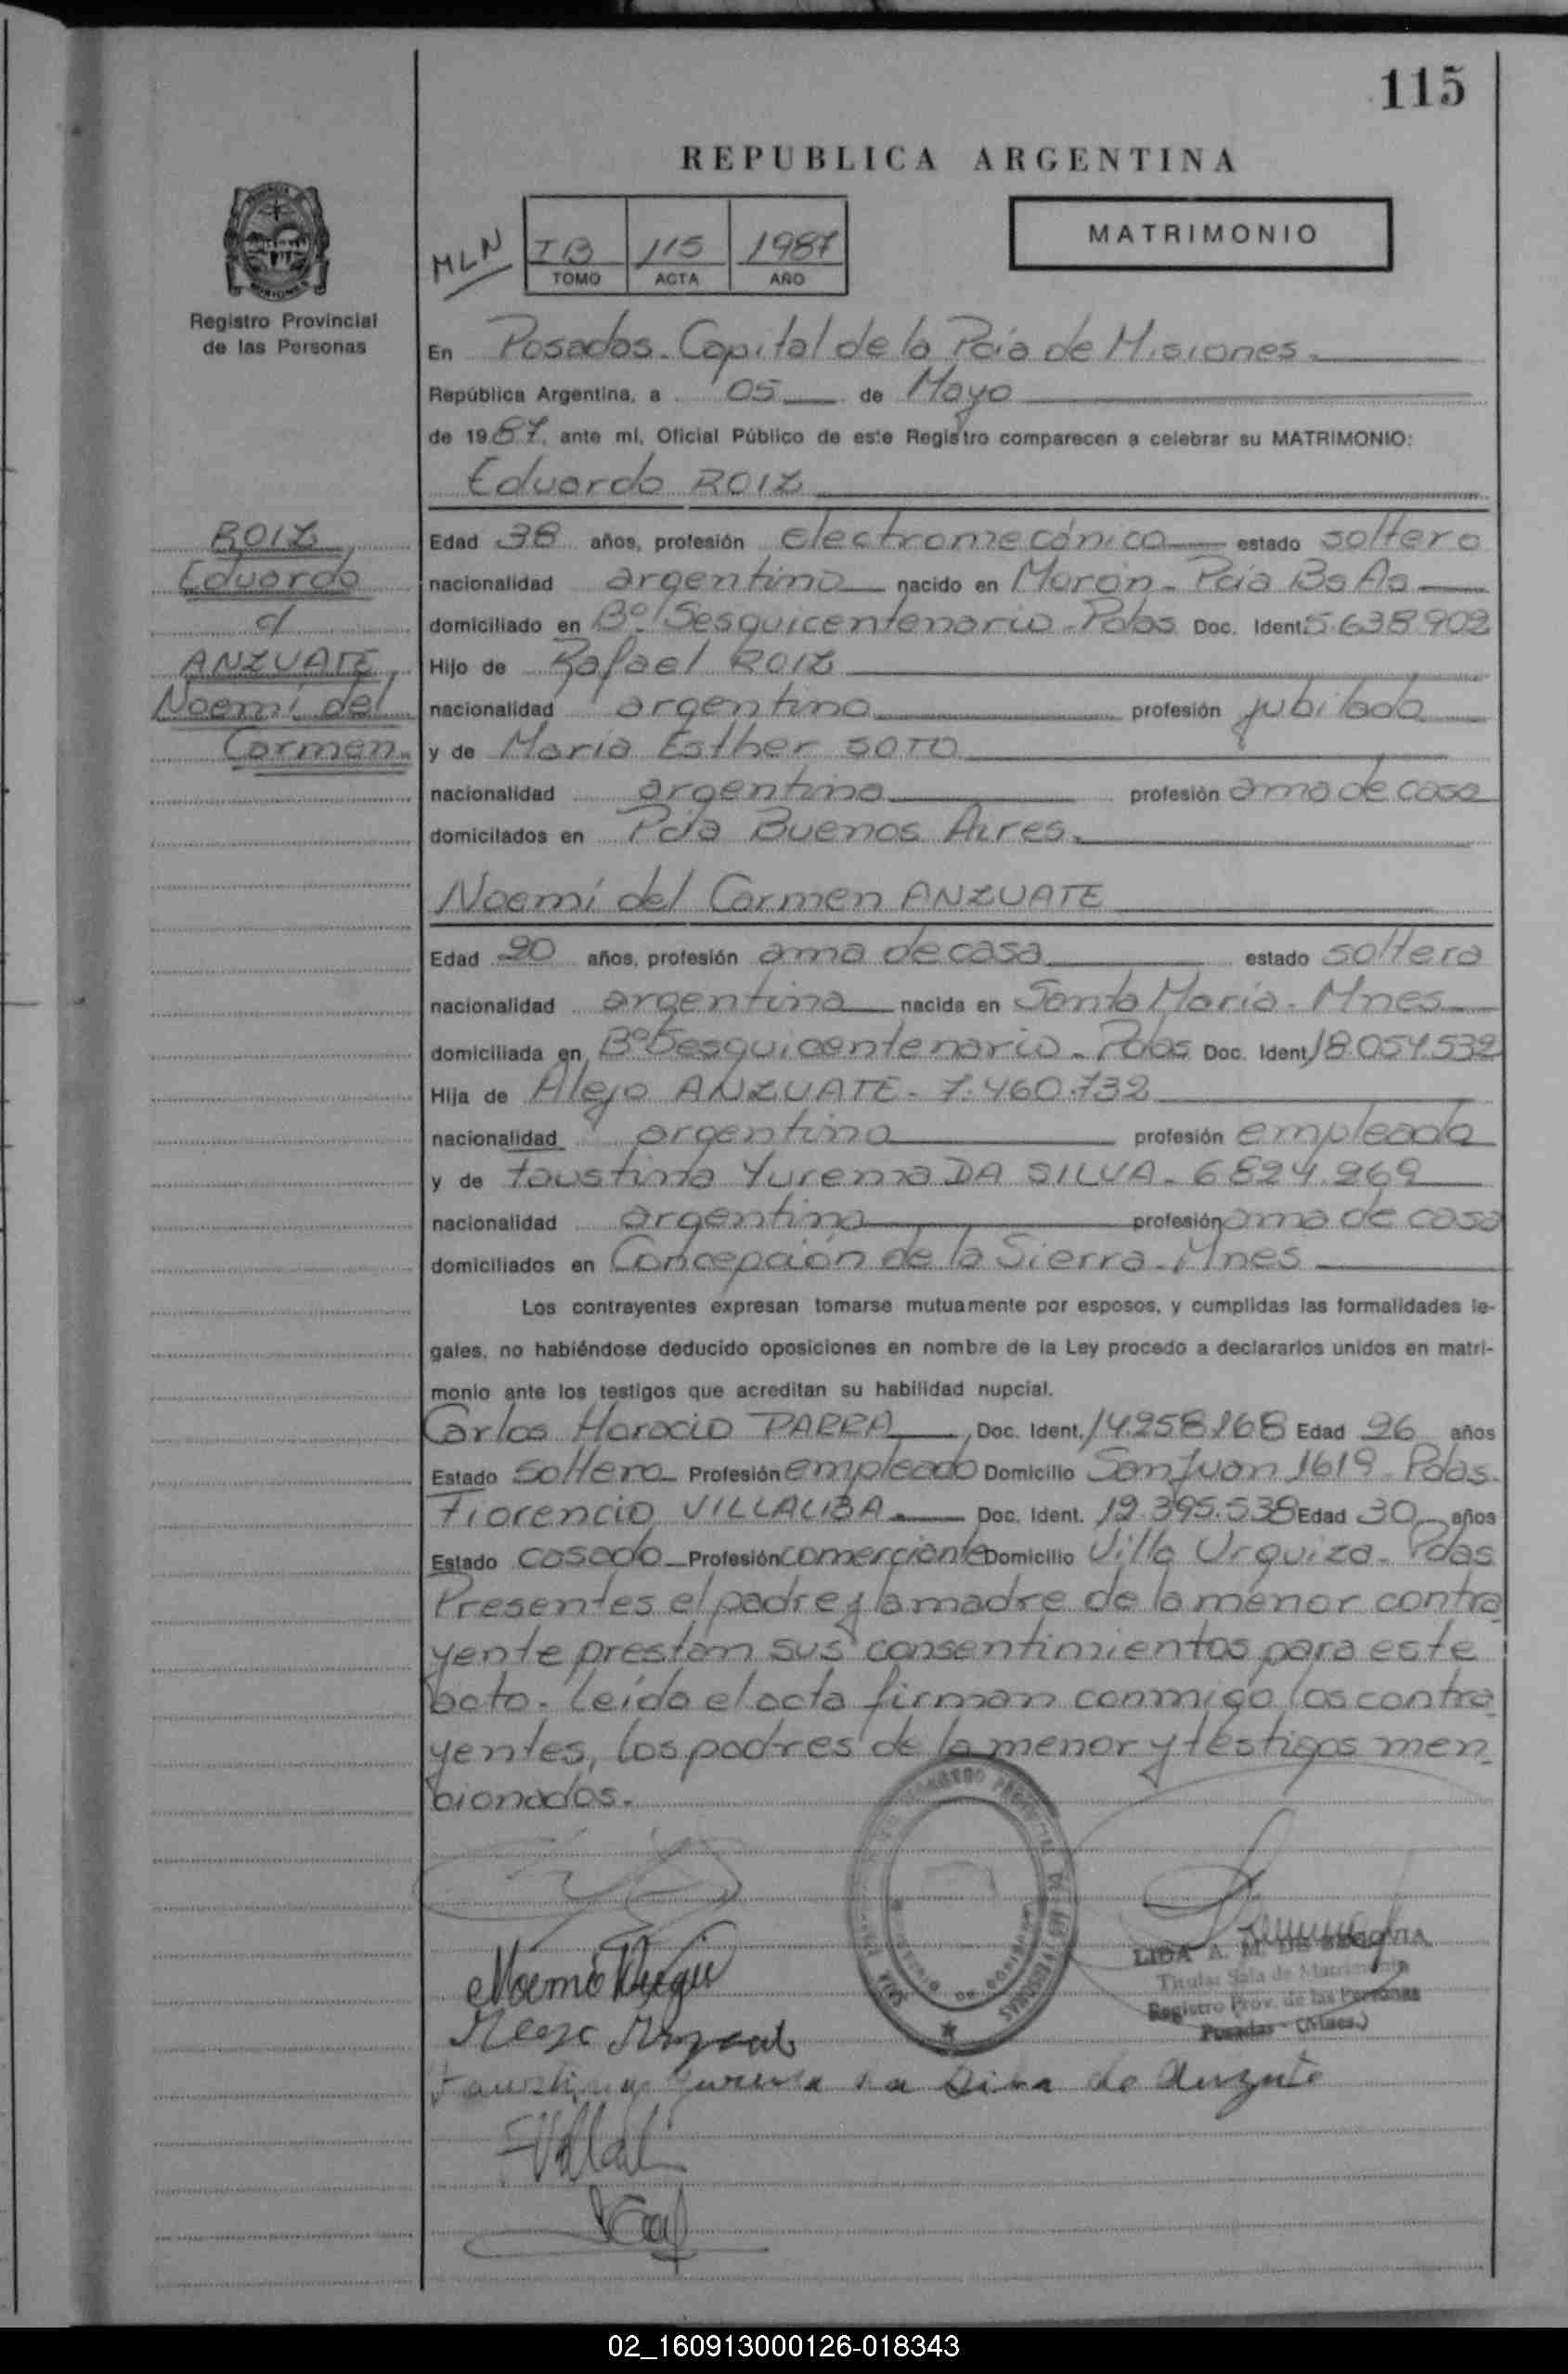 115
REPUBLICA ARGENTINA
MLN
IB 115 1987
TOMO ACTA AÑO
MATRIMONIO
Registro Provincial
de las Personas
En Posadas. Capital de la Pcia de Misiones.
República Argentina, a 05 de Mayo
de 1987, ante mi, Oficial Público de este Registro comparecen a celebrar su MATRIMONIO:
Eduardo ROIZ
ROIZ,
Eduardo
c/
ANZUATE,
Noemí del
Carmen.
Edad 38 años, profesión electromecánico estado soltero
nacionalidad argentina nacido en Morón - Pcia Bs As
domiciliado en Bº Sesquicentenario - Pdas Doc. Ident. 5.638.902
Hijo de Rafael ROIZ
nacionalidad argentina profesión jubilado
y de María Esther SOTO
nacionalidad argentina profesión ama de casa
domicilados en Pcia Buenos Aires.
Noemí del Carmen ANZUATE
Edad 20 años, profesión ama de casa estado soltera
nacionalidad argentina nacida en Santa María - Mnes
domiciliada en Bº Sesquicentenario - Pdas Doc. Ident. 18.054.532
Hija de Alejo ANZUATE - 7.460.732
nacionalidad argentina profesión empleado
y de Faustina Yurema DA SILVA - 6824.269
nacionalidad argentina profesión ama de casa
domiciliados en Concepción de la Sierra - Mnes
Los contrayentes expresan tomarse mutuamente por esposos, y cumplidas las formalidades le-
gales, no habiéndose deducido oposiciones en nombre de la Ley procedo a declararlos unidos en matri-
monio ante los testigos que acreditan su habilidad nupcial.
Carlos Horacio PARRA, Doc. Ident. 14.258.168 Edad 26 años
Estado soltero Profesión empleado Domicilio San Juan 1619 - Pdas.
Florencio VILLALBA Doc. Ident. 12.395.538 Edad 30 años
Estado casado Profesión comerciante Domicilio Villa Urquiza - Pdas
Presentes el padre y la madre de la menor contra
yente prestan sus consentimientos para este
acto. Leída el acta firman conmigo los contra
yentes, los padres de la menor y testigos men
cionados.
LIDA A. M. DE SEGOVIA
Titular Sala de Matrimonio
Registro Prov. de las Personas
Posadas - (Mnes.)
Faustina Yurema da Silva de Anzuate
02_160913000126-018343